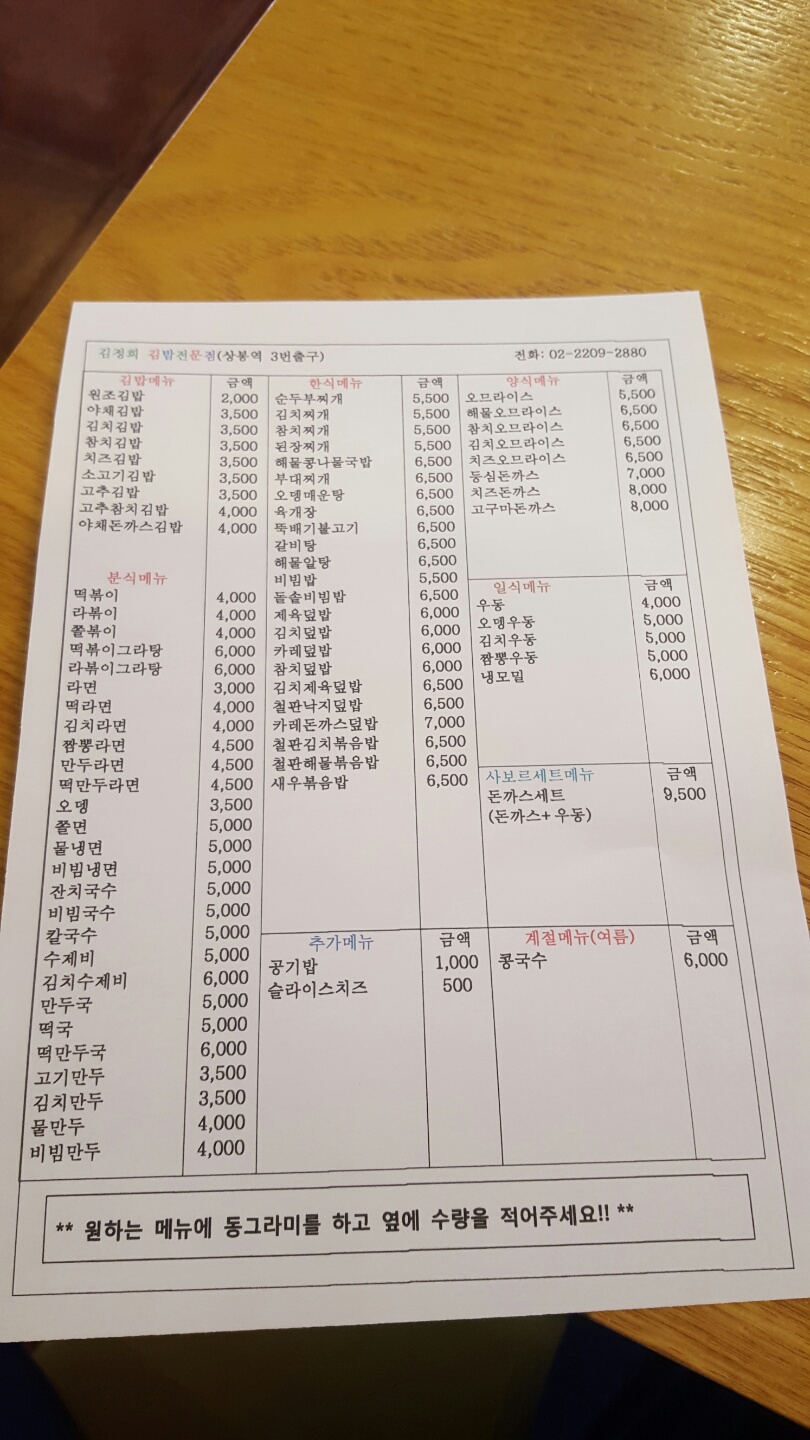 김정희 김밥전문점(상봉역 3번출구) 전화: 02-2209-2880
김밥메뉴 금액
원조김밥 2,000
야채김밥 3,500
김치김밥 3,500
참치김밥 3,500
치즈김밥 3,500
소고기김밥 3,500
고추김밥 3,500
고추참치김밥 4,000
야채돈까스김밥 4,000
분식메뉴
떡볶이 4,000
라볶이 4,000
쫄볶이 4,000
떡볶이그라탕 6,000
라볶이그라탕 6,000
라면 3,000
떡라면 4,000
김치라면 4,000
짬뽕라면 4,500
만두라면 4,500
떡만두라면 4,500
오뎅 3,500
쫄면 5,000
물냉면 5,000
비빔냉면 5,000
잔치국수 5,000
비빔국수 5,000
칼국수 5,000
수제비 5,000
김치수제비 6,000
만두국 5,000
떡국 5,000
떡만두국 6,000
고기만두 3,500
김치만두 3,500
물만두 4,000
비빔만두 4,000
한식메뉴 금액
순두부찌개 5,500
김치찌개 5,500
참치찌개 5,500
된장찌개 5,500
해물콩나물국밥 6,500
부대찌개 6,500
오뎅매운탕 6,500
육개장 6,500
뚝배기불고기 6,500
갈비탕 6,500
해물알탕 6,500
비빔밥 5,500
돌솥비빔밥 6,500
제육덮밥 6,000
김치덮밥 6,000
카레덮밥 6,000
참치덮밥 6,000
김치제육덮밥 6,500
철판낙지덮밥 6,500
카레돈까스덮밥 7,000
철판김치볶음밥 6,500
철판해물볶음밥 6,500
새우볶음밥 6,500
추가메뉴 금액
공기밥 1,000
슬라이스치즈 500
양식메뉴 금액
오므라이스 5,500
해물오므라이스 6,500
참치오므라이스 6,500
김치오므라이스 6,500
치즈오므라이스 6,500
등심돈까스 7,000
치즈돈까스 8,000
고구마돈까스 8,000
일식메뉴 금액
우동 4,000
오뎅우동 5,000
김치우동 5,000
짬뽕우동 5,000
냉모밀 6,000
사보르세트메뉴 금액
돈까스세트 9,500
(돈까스+ 우동)
계절메뉴(여름) 금액
콩국수 6,000
** 원하는 메뉴에 동그라미를 하고 옆에 수량을 적어주세요!! **